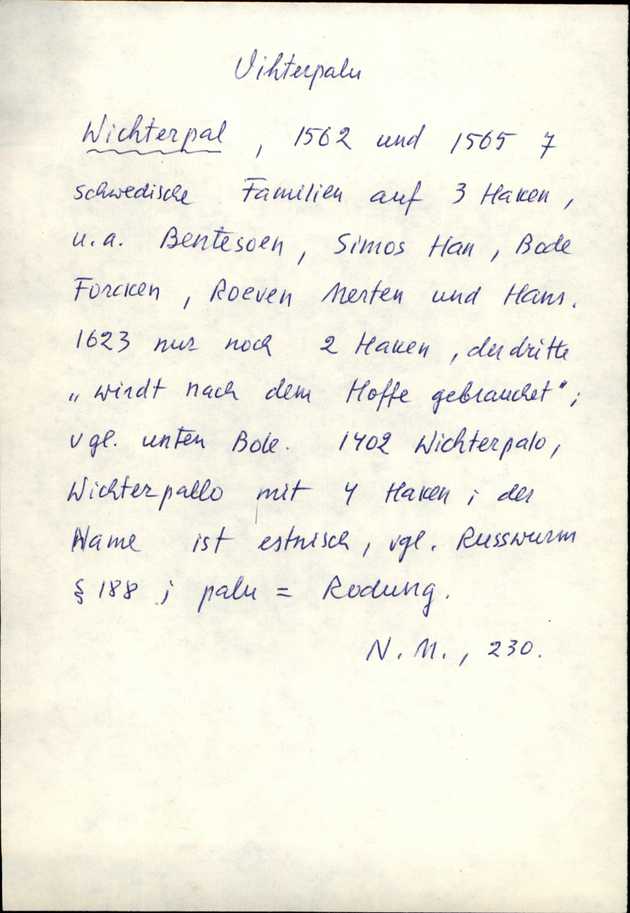 Vihterpalu
Wichterpal, 1562 und 1565 7
schwedische Familien auf 3 Haken,
u.a. Bentesoen, Simos Han, Bode
Forcken, Roeven Merten und Hans.
1623 nur noch 2 Haken, der dritte
„wirdt nach dem Hoffe gebrauchet";
vgl. unten Bole. 1402 Wichterpalo,
Wichterpallo mit 4 Haken; der
Name ist estnisch, vgl. Russwurm
§ 188; palu = Rodung.
N.M., 230.